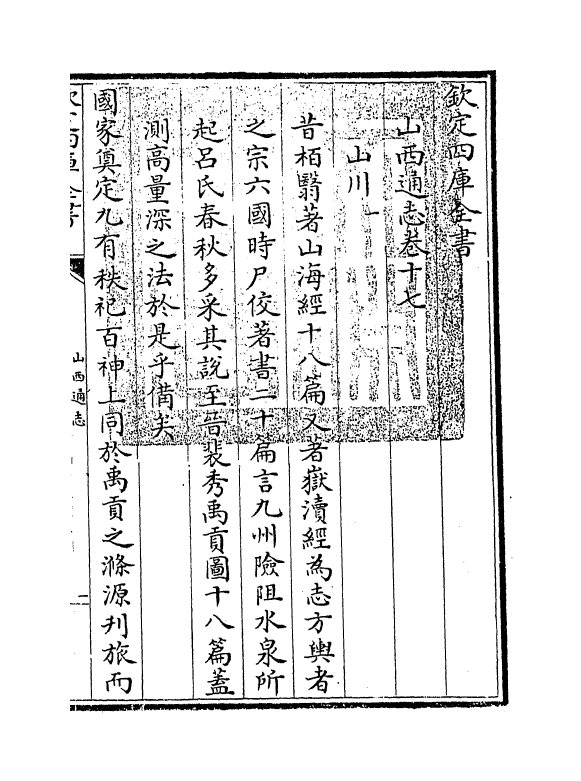 欽定四庫全書
山西通志卷十七
山川一
昔栢翳著山海經十八篇又著嶽瀆經為志方輿者
之宗六國時尸佼著書二十篇言九州險阻水泉所
起呂氏春秋多采其說至晉裴秀禹貢圖十八篇蓋
測高量深之法於是乎備矣
國家奠定九有秩祀百神上同於禹貢之滌源刋旅而
山西通志